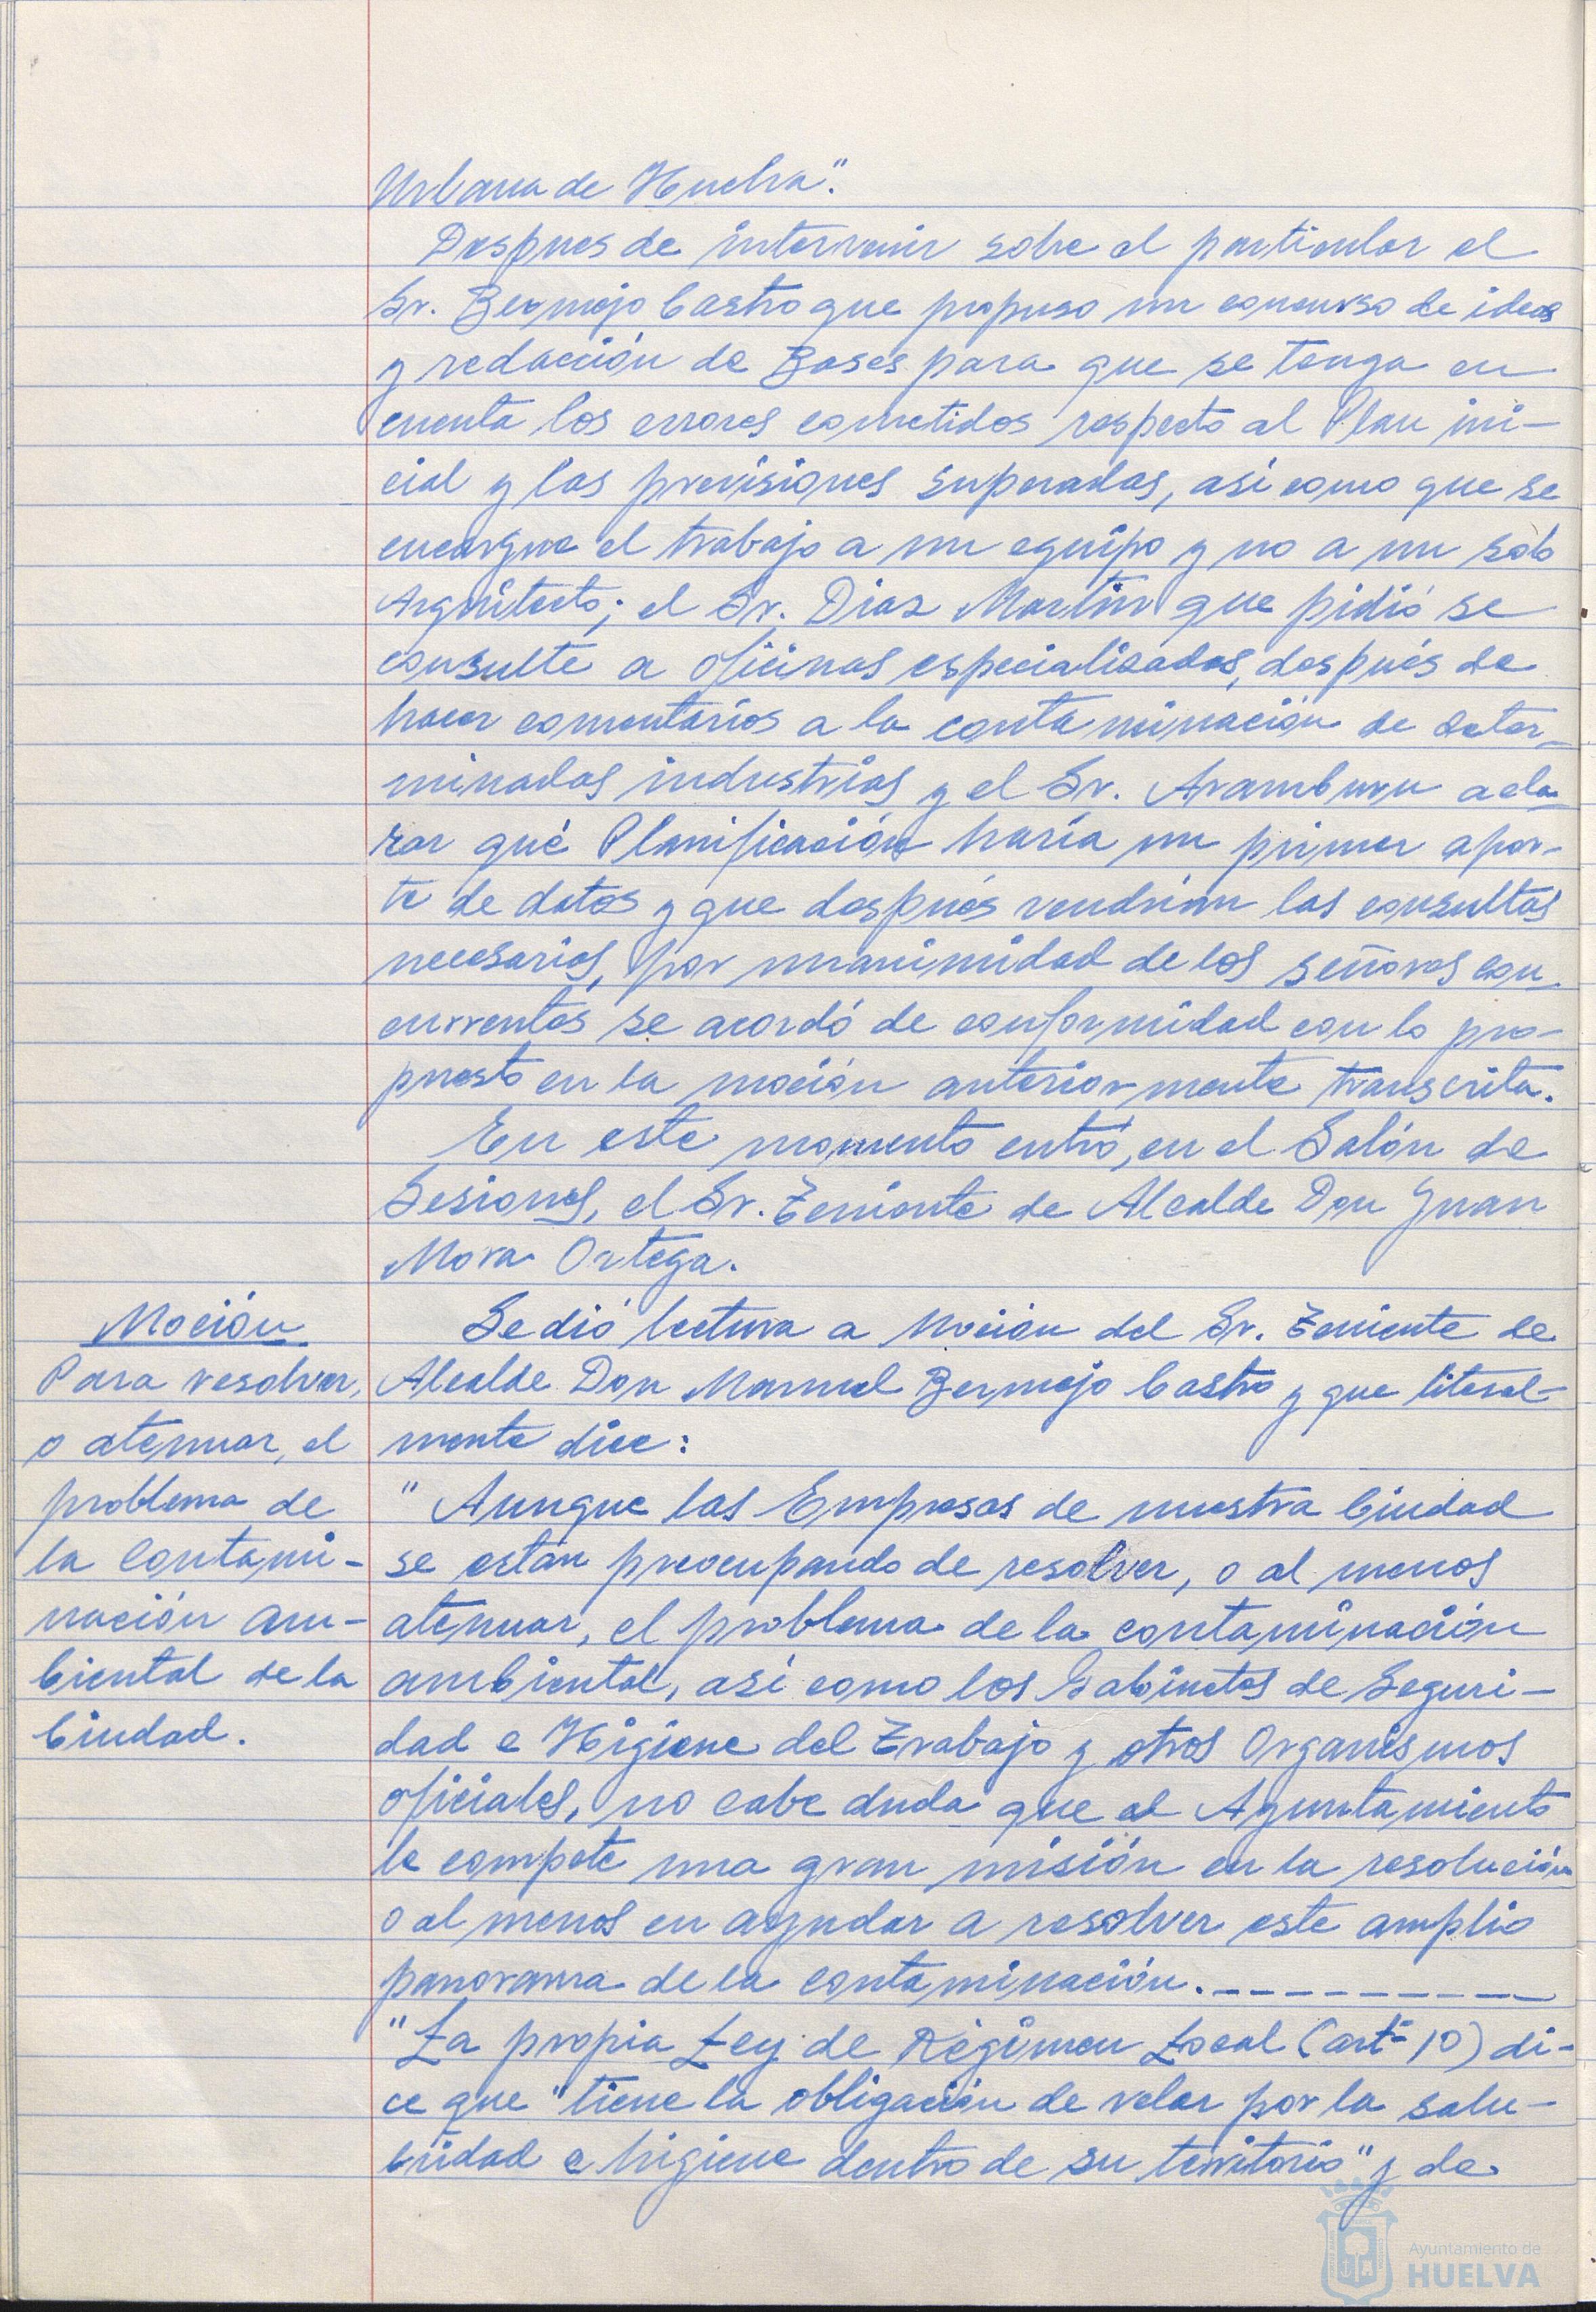 Urbana de Huelva".
Despues de intervenir sobre el particular el
Sr. Bermejo Castro que propuso un concurso de ideas
y redacción de Bases para que se tenga en
cuenta los errores cometidos respecto al Plan ini-
cial y las previsiones superadas, así como que se
encargue el trabajo a un equipo y no a un solo
Arquitecto; el Sr. Diaz Martin que pidió se
consulte a oficinas especializadas, después de
hacer comentarios a la contaminación de deter-
minadas industrias y el Sr. Aramburu acla-
rar qué Planificación haría un primer apor-
te de datos y que después vendrían las consultas
necesarias, por unanimidad de los señores con-
currentes se acordó de conformidad con lo pro-
puesto en la moción anteriormente transcrita.
En este momento entró, en el Salón de
Sesiones, el Sr. Teniente de Alcalde Don Juan
Mora Ortega.
Moción
Para resolver,
o atenuar, el
problema de
la Contami-
nación am-
biental de la
Ciudad.
Se dió lectura a Moción del Sr. Teniente de
Alcalde Don Manuel Bermejo Castro y que literal-
mente dice:
"Aunque las Empresas de nuestra Ciudad
se están preocupando de resolver, o al menos
atenuar, el problema de la contaminación
ambiental, así como los Gabinetes de Seguri-
dad e Higiene del Trabajo y otros Organismos
oficiales, no cabe duda que al Ayuntamiento
le compete una gran misión en la resolución
o al menos en ayudar a resolver este amplio
panorama de la contaminación.----------
"La propia Ley de Régimen Local (artº 10) di-
ce que "tiene la obligación de velar por la salu-
bridad e higiene dentro de su territorio" y de
Ayuntamiento de
HUELVA